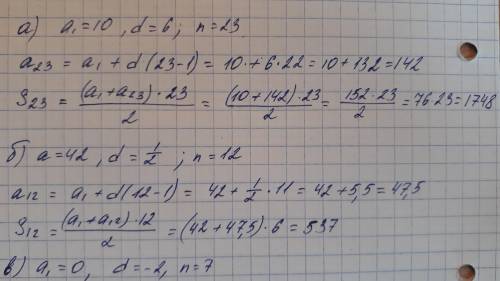 а) a₁=10 , d=6 ; n=23
a₂₃ = a₁ + d(23-1) = 10·+6·22=10+132=142
S₂₃ = (a₁+a₂₃)·23/2 = (10+142)·23/2 = 152·23/2 = 76·23=1748
б) a=42 , d=1/2 ; n=12
a₁₂ = a₁+d(12-1) = 42+1/2·11=42+5,5=47,5
S₁₂ = (a₁+a₁₂)·12/2 = (42+47,5)·6=537
в) a₁=0, d=-2, n=7